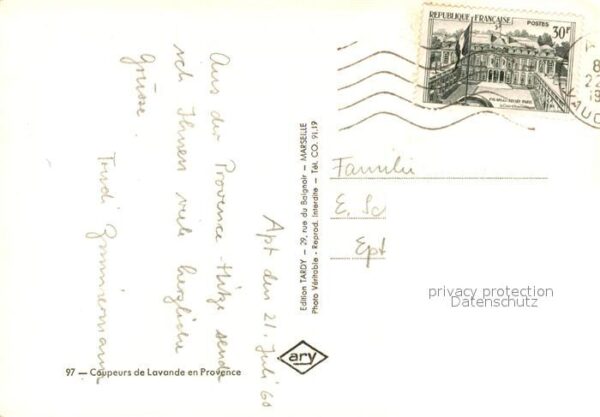 REPUBLIQUE FRANÇAISE
POSTES
30F
PALAIS DE L'ELYSÉE PARIS
VAUC
Apt den 21. Juli 60
Aus der Provence-Hitze sende
ich Ihnen viele herzliche
Grüsse.
Trudi Zimmermann
Edition TARDY — 29, rue du Baignoir — MARSEILLE
Photo Véritable - Reprod. Interdite — Tél. CO. 91.19
Familie
E. Sc
Ept
privacy protection
Datenschutz
ary
97 — Coupeurs de Lavande en Provence